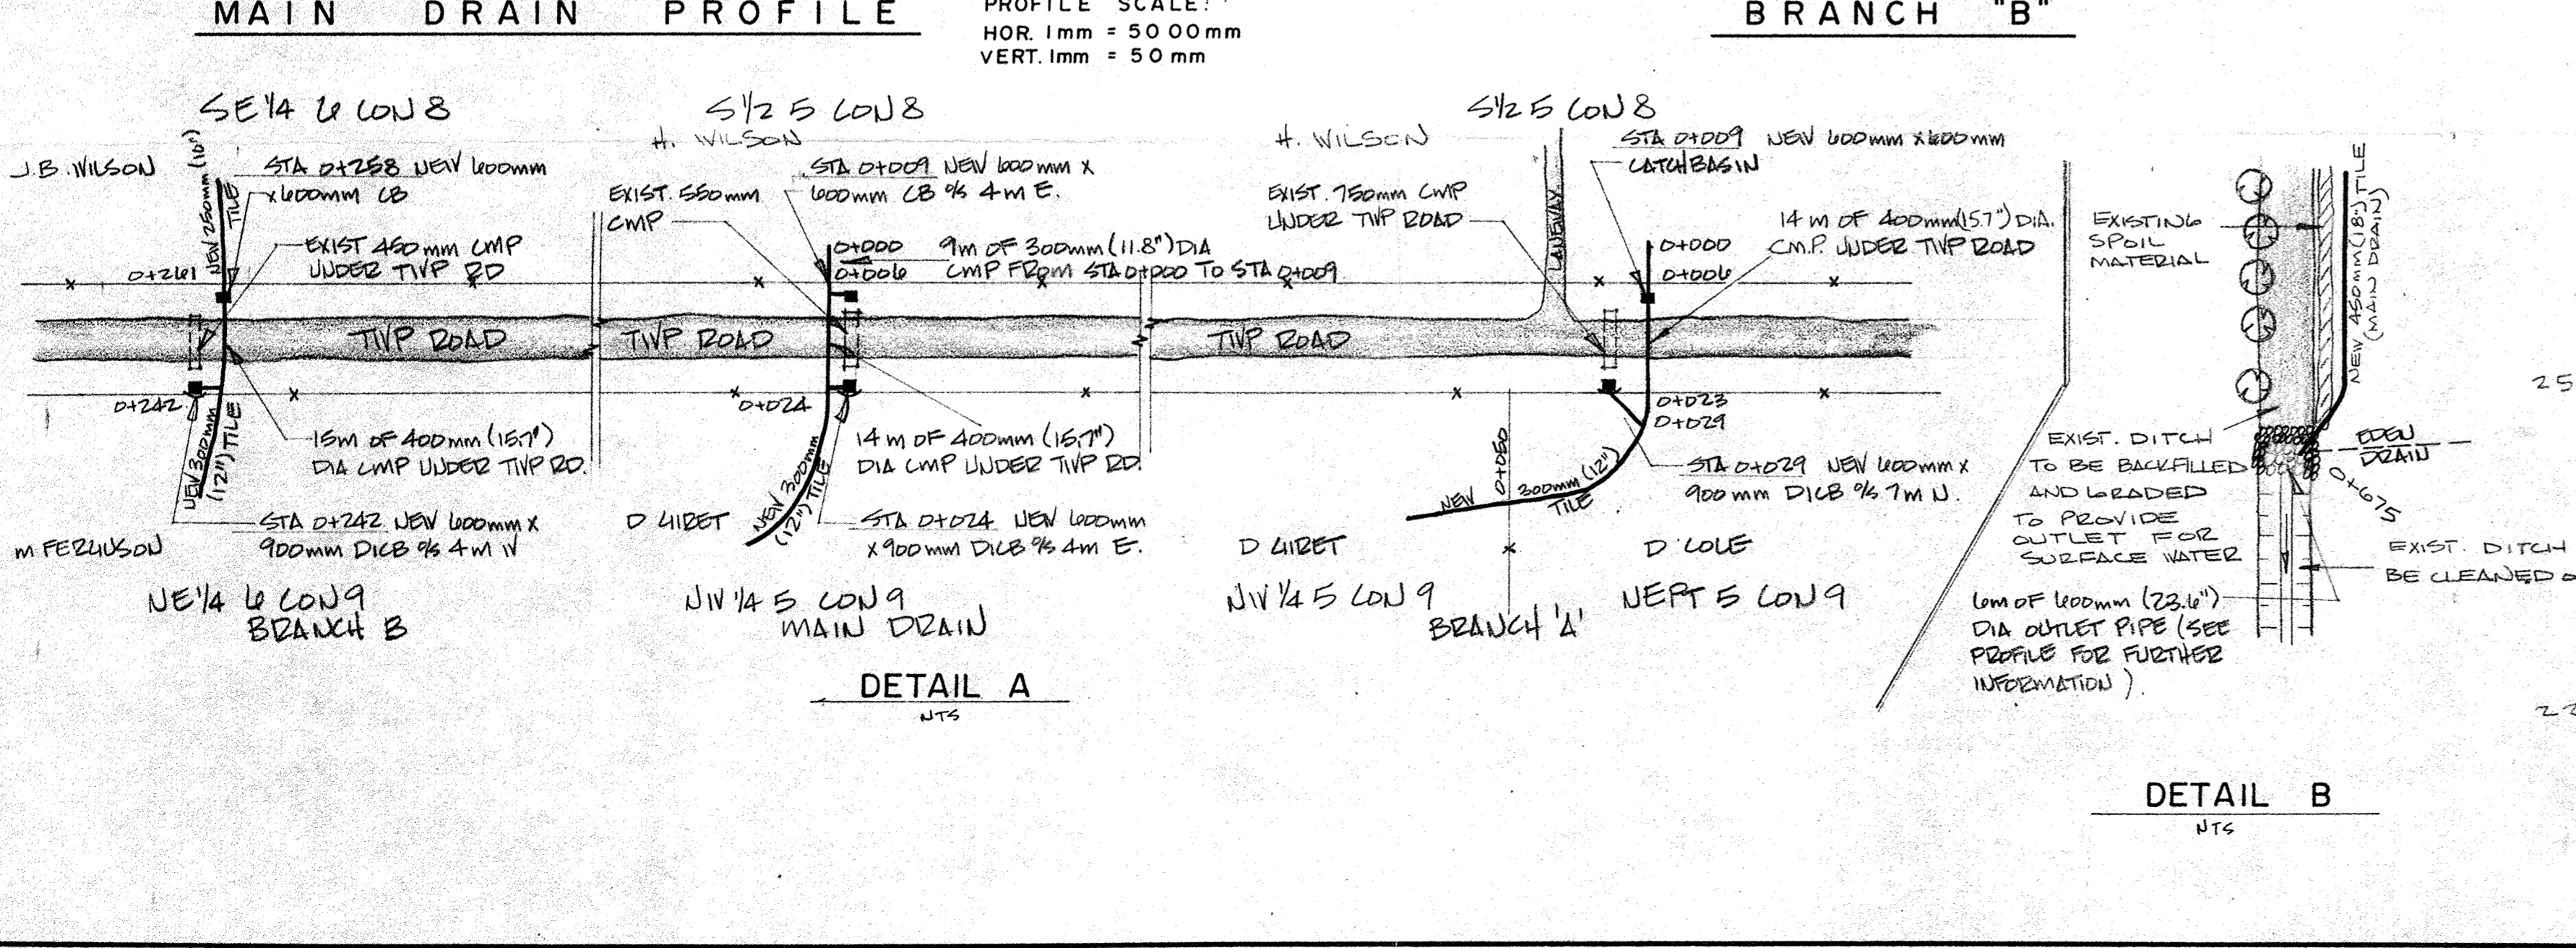 MAIN DRAIN PROFILE
PROFILE SCALE:
HOR. 1mm = 5000mm
VERT. 1mm = 50mm
BRANCH "B"
SE 1/4 6 CON 8
J.B. WILSON
NEW 250mm (10")
TILE
STA 0+258 NEW 600mm
x600mm CB
EXIST 450mm CMP
UNDER TWP RD
0+261
TWP ROAD
0+242
NEW 300mm
(12") TILE
15m OF 400mm (15.7")
DIA CMP UNDER TWP RD.
STA 0+242 NEW 600mm x
900mm DICB o/s 4m W
M FERGUSON
NE 1/4 6 CON 9
BRANCH B
S 1/2 5 CON 8
H. WILSON
EXIST. 550mm
CMP
STA 0+009 NEW 600mm x
600mm CB o/s 4m E.
0+000
0+006
9m OF 300mm (11.8") DIA
CMP FROM STA 0+000 TO STA 0+009
TWP ROAD
0+024
NEW 300mm
(12") TILE
14m OF 400mm (15.7")
DIA CMP UNDER TWP RD.
D GIRET
STA 0+024 NEW 600mm
x 900mm DICB o/s 4m E.
NW 1/4 5 CON 9
MAIN DRAIN
DETAIL A
NTS
S 1/2 5 CON 8
H. WILSON
EXIST. 750mm CMP
UNDER TWP ROAD
LANEWAY
STA 0+009 NEW 600mm x600mm
CATCHBASIN
0+000
0+006
14m OF 400mm (15.7") DIA.
C.M.P. UNDER TWP ROAD
TWP ROAD
0+023
0+029
0+050
NEW 300mm (12")
TILE
STA 0+029 NEW 600mm x
900mm DICB o/s 7m N.
D GIRET
D. COLE
NW 1/4 5 CON 9
NEPT 5 CON 9
BRANCH 'A'
EXISTING
SPOIL
MATERIAL
NEW 450mm (18") TILE
(MAIN DRAIN)
EDEN
DRAIN
0+675
EXIST. DITCH
TO BE BACKFILLED
AND GRADED
TO PROVIDE
OUTLET FOR
SURFACE WATER
EXIST. DITCH
BE CLEANED
6m OF 600mm (23.6")
DIA OUTLET PIPE (SEE
PROFILE FOR FURTHER
INFORMATION).
DETAIL B
NTS
25